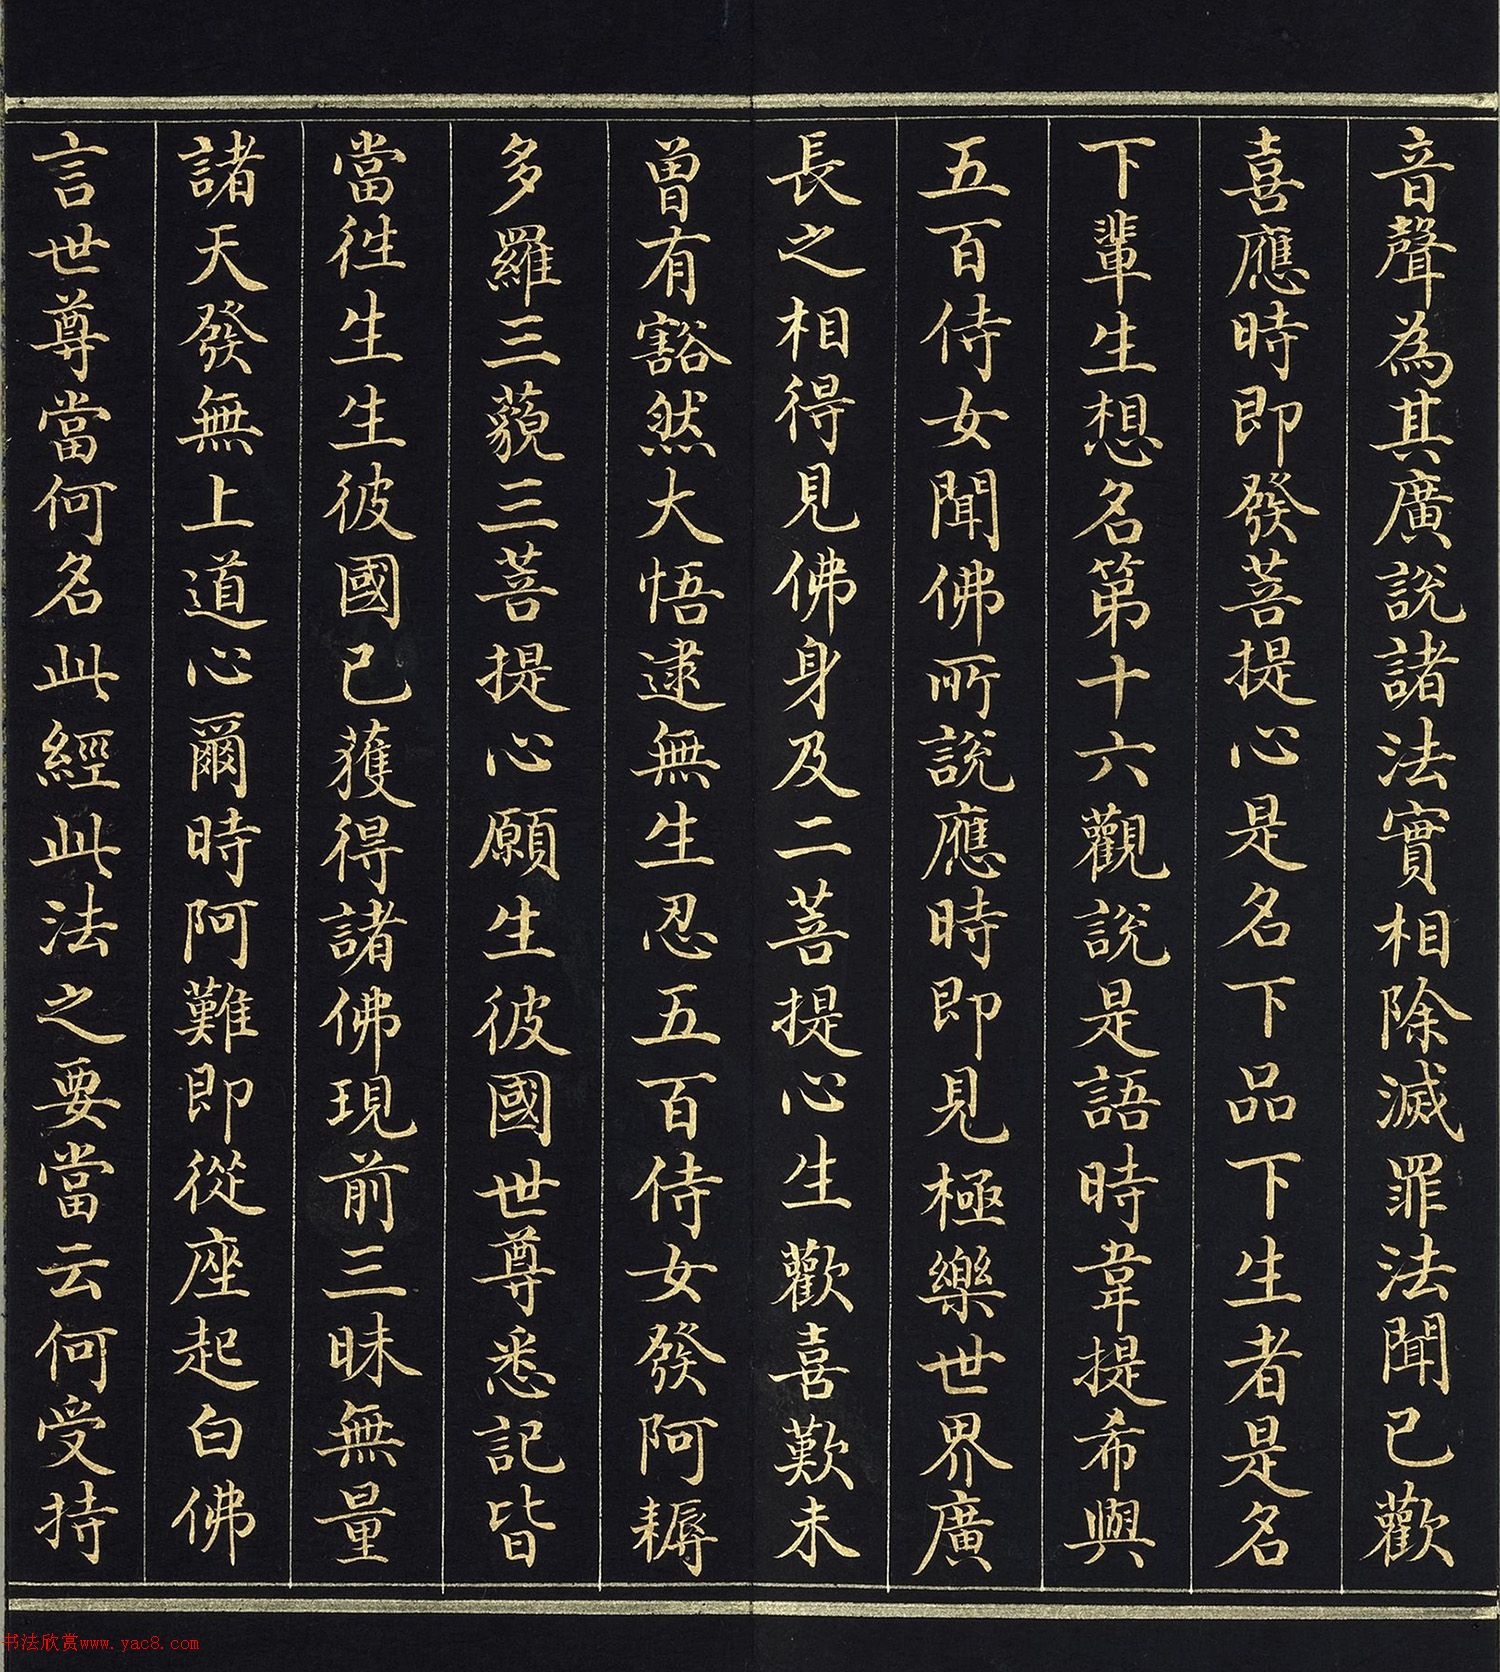 音聲為其廣說諸法實相除滅罪法聞已歡
喜應時即發菩提心是名下品下生者是名
下輩生想名第十六觀說是語時韋提希與
五百侍女聞佛所說應時即見極樂世界廣
長之相得見佛身及二菩提心生歡喜歎未
曾有豁然大悟逮無生忍五百侍女發阿耨
多羅三藐三菩提心願生彼國世尊悉記皆
當徃生生彼國已獲得諸佛現前三昧無量
諸天發無上道心爾時阿難即從座起白佛
言世尊當何名此經此法之要當云何受持
书法欣赏www.yac8.com